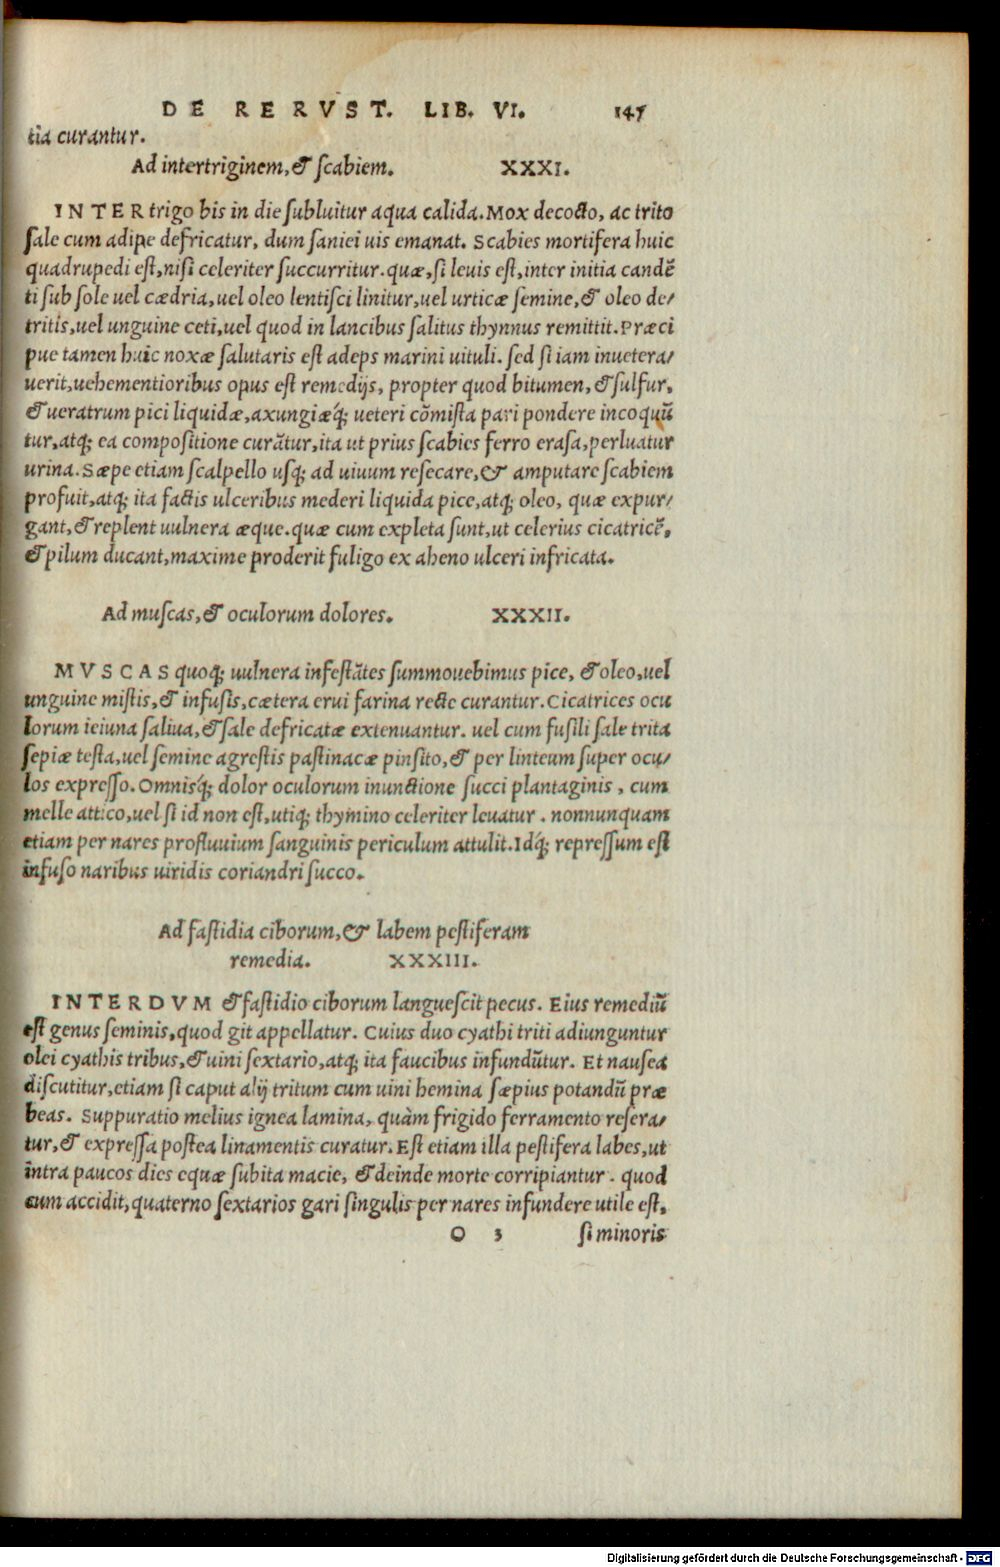 DE RE RVST. LIB. VI. 147
tia curantur.
Ad intertriginem, & scabiem. XXXI.
INTERtrigo bis in die subluitur aqua calida. Mox decocto, ac trito
sale cum adipe defricatur, dum saniei uis emanat. Scabies mortifera huic
quadrupedi est, nisi celeriter succurritur. quæ, si leuis est, inter initia candẽ
ti sub sole uel cædria, uel oleo lentisci linitur, uel urticæ semine, & oleo de/
tritis, uel unguine ceti, uel quod in lancibus salitus thynnus remittit. Præci
pue tamen huic noxæ salutaris est adeps marini uituli. sed si iam inuetera/
uerit, uehementioribus opus est remedijs, propter quod bitumen, & sulfur,
& ueratrum pici liquidæ, axungiæq́; ueteri cõmista pari pondere incoquũ
tur, atq; ea compositione curãtur, ita ut prius scabies ferro erasa, perluatur
urina. Sæpe etiam scalpello usq; ad uiuum resecare, & amputare scabiem
profuit, atq; ita factis ulceribus mederi liquida pice, atq; oleo, quæ expur/
gant, & replent uulnera æque. quæ cum expleta sunt, ut celerius cicatricẽ,
& pilum ducant, maxime proderit fuligo ex aheno ulceri infricata.
Ad muscas, & oculorum dolores. XXXII.
MVSCAS quoq; uulnera infestãtes summouebimus pice, & oleo, uel
unguine mistis, & infusis, cætera erui farina recte curantur. Cicatrices ocu
lorum ieiuna saliua, & sale defricatæ extenuantur. uel cum fusili sale trita
sepiæ testa, uel semine agrestis pastinacæ pinsito, & per linteum super ocu/
los expresso. Omnisq́; dolor oculorum inunctione succi plantaginis, cum
melle attico, uel si id non est, utiq; thymino celeriter leuatur. nonnunquam
etiam per nares profluuium sanguinis periculum attulit. Idq́; repressum est
infuso naribus uiridis coriandri succo.
Ad fastidia ciborum, & labem pestiferam
remedia. XXXIII.
INTERDVM & fastidio ciborum languescit pecus. Eius remediũ
est genus seminis, quod git appellatur. Cuius duo cyathi triti adiunguntur
olei cyathis tribus, & uini sextario, atq; ita faucibus infundũtur. Et nausea
discutitur, etiam si caput alij tritum cum uini hemina sæpius potandũ præ
beas. Suppuratio melius ignea lamina, quàm frigido ferramento resera/
tur, & expressa postea linamentis curatur. Est etiam illa pestifera labes, ut
intra paucos dies equæ subita macie, & deinde morte corripiantur. quod
cum accidit, quaterno sextarios gari singulis per nares infundere utile est,
O 3 si minoris
Digitalisierung gefördert durch die Deutsche Forschungsgemeinschaft - DFG